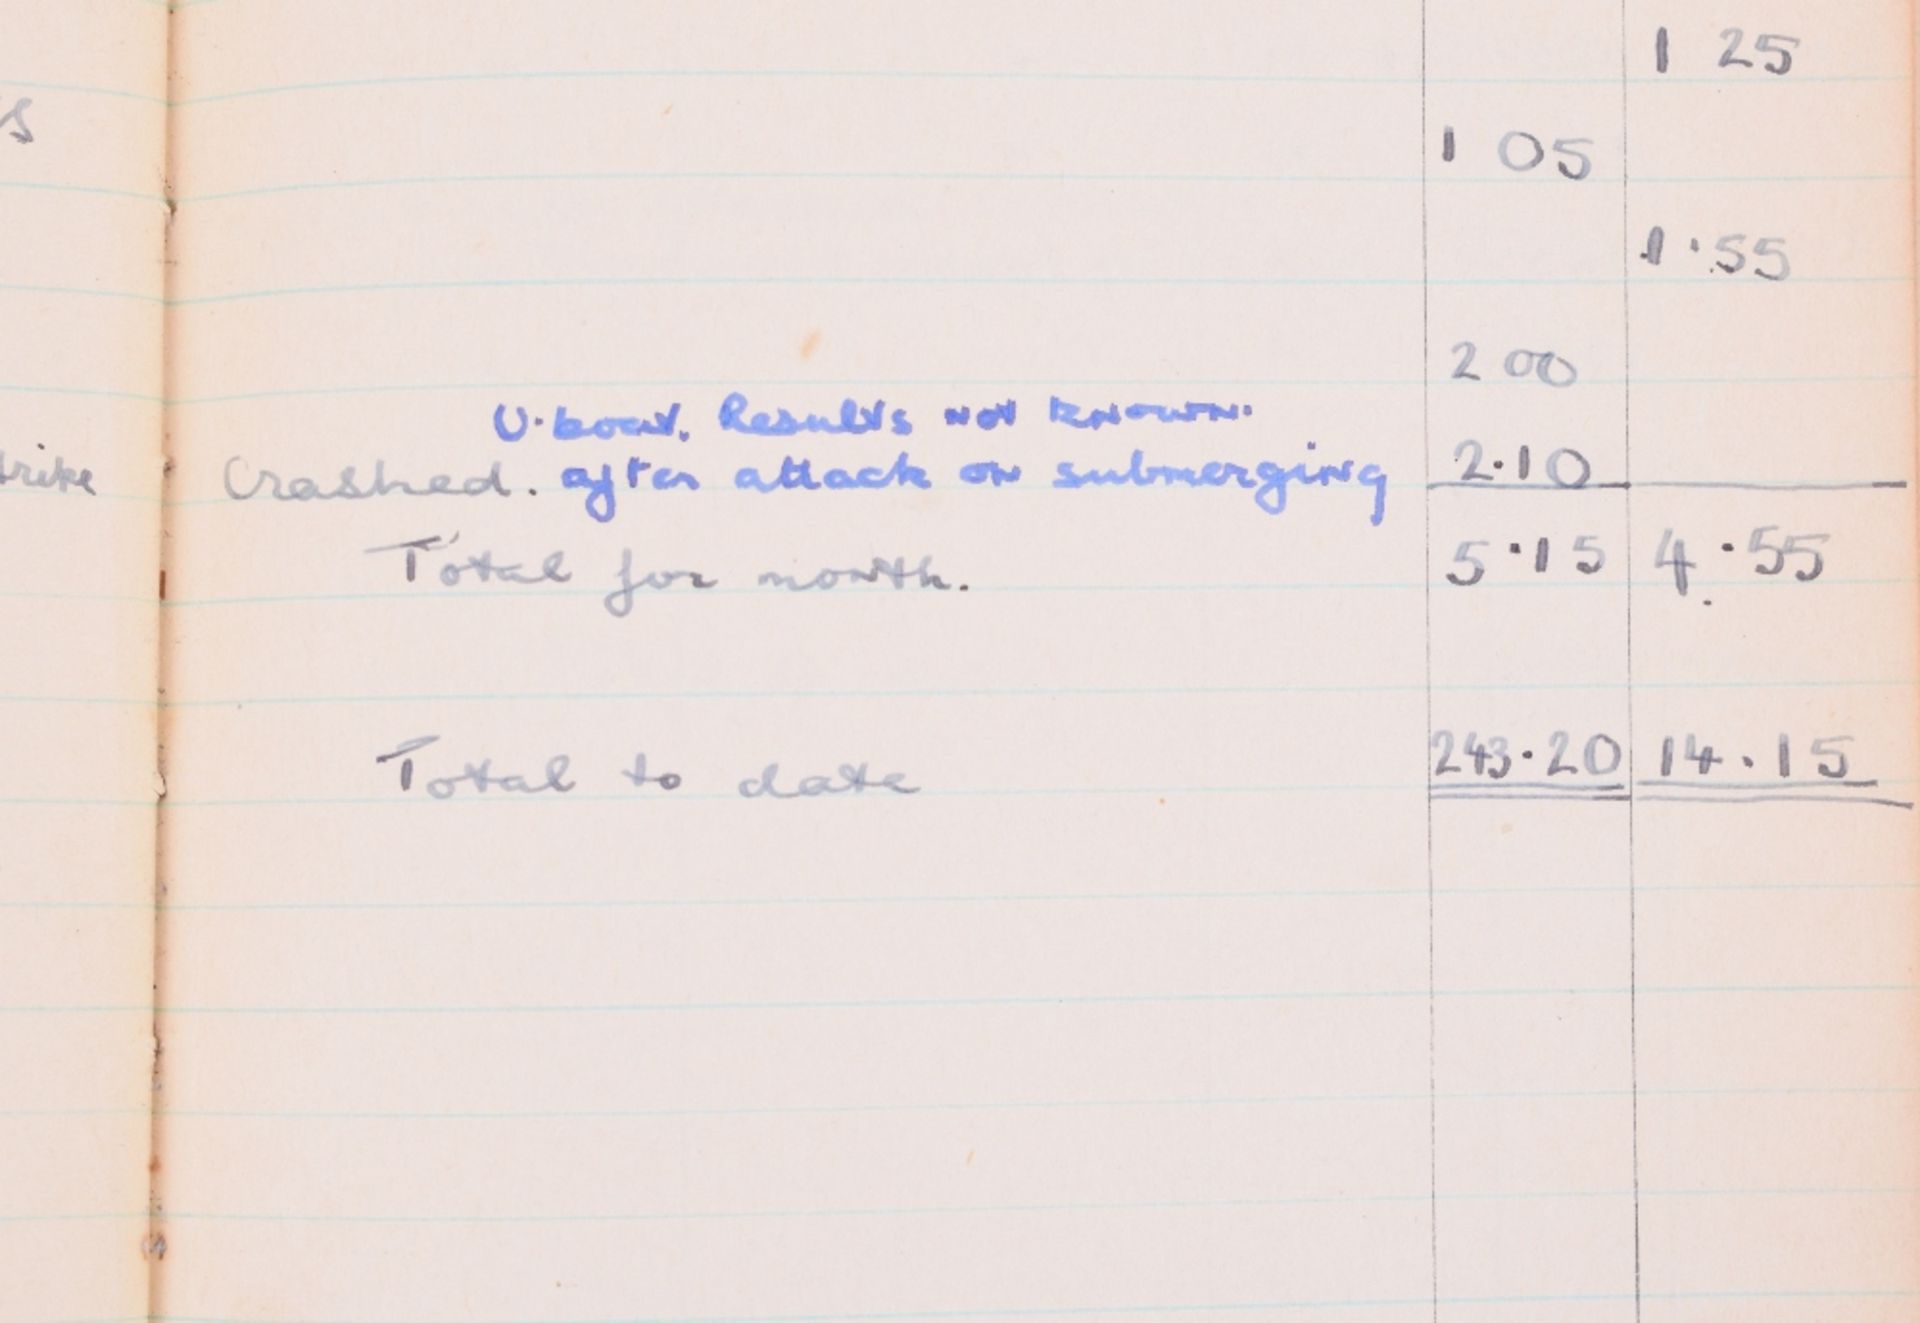 1 25
1 05
1·55
2 00
U-boat. Results not known.
Crashed. after attack on submerging 2·10
Total for month. 5·15 4·55
Total to date 243·20 14·15